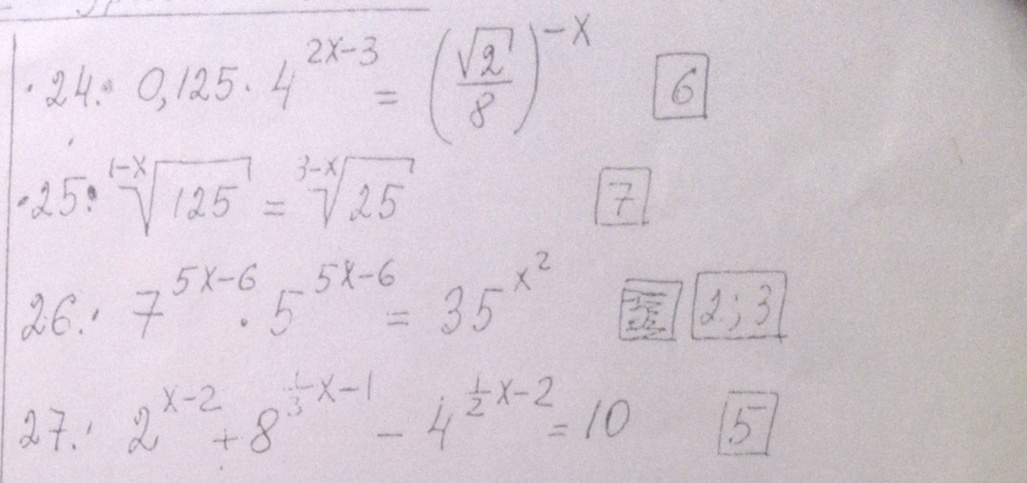 24. 0,125 · 4^{2x-3} = (√2/8)^{-x} 6
25. ^{1-x}√125 = ^{3-x}√25 7
26. 7^{5x-6} · 5^{5x-6} = 35^{x^2} 2; 3
27. 2^{x-2} + 8^{1/3 x-1} - 4^{1/2 x-2} = 10 5